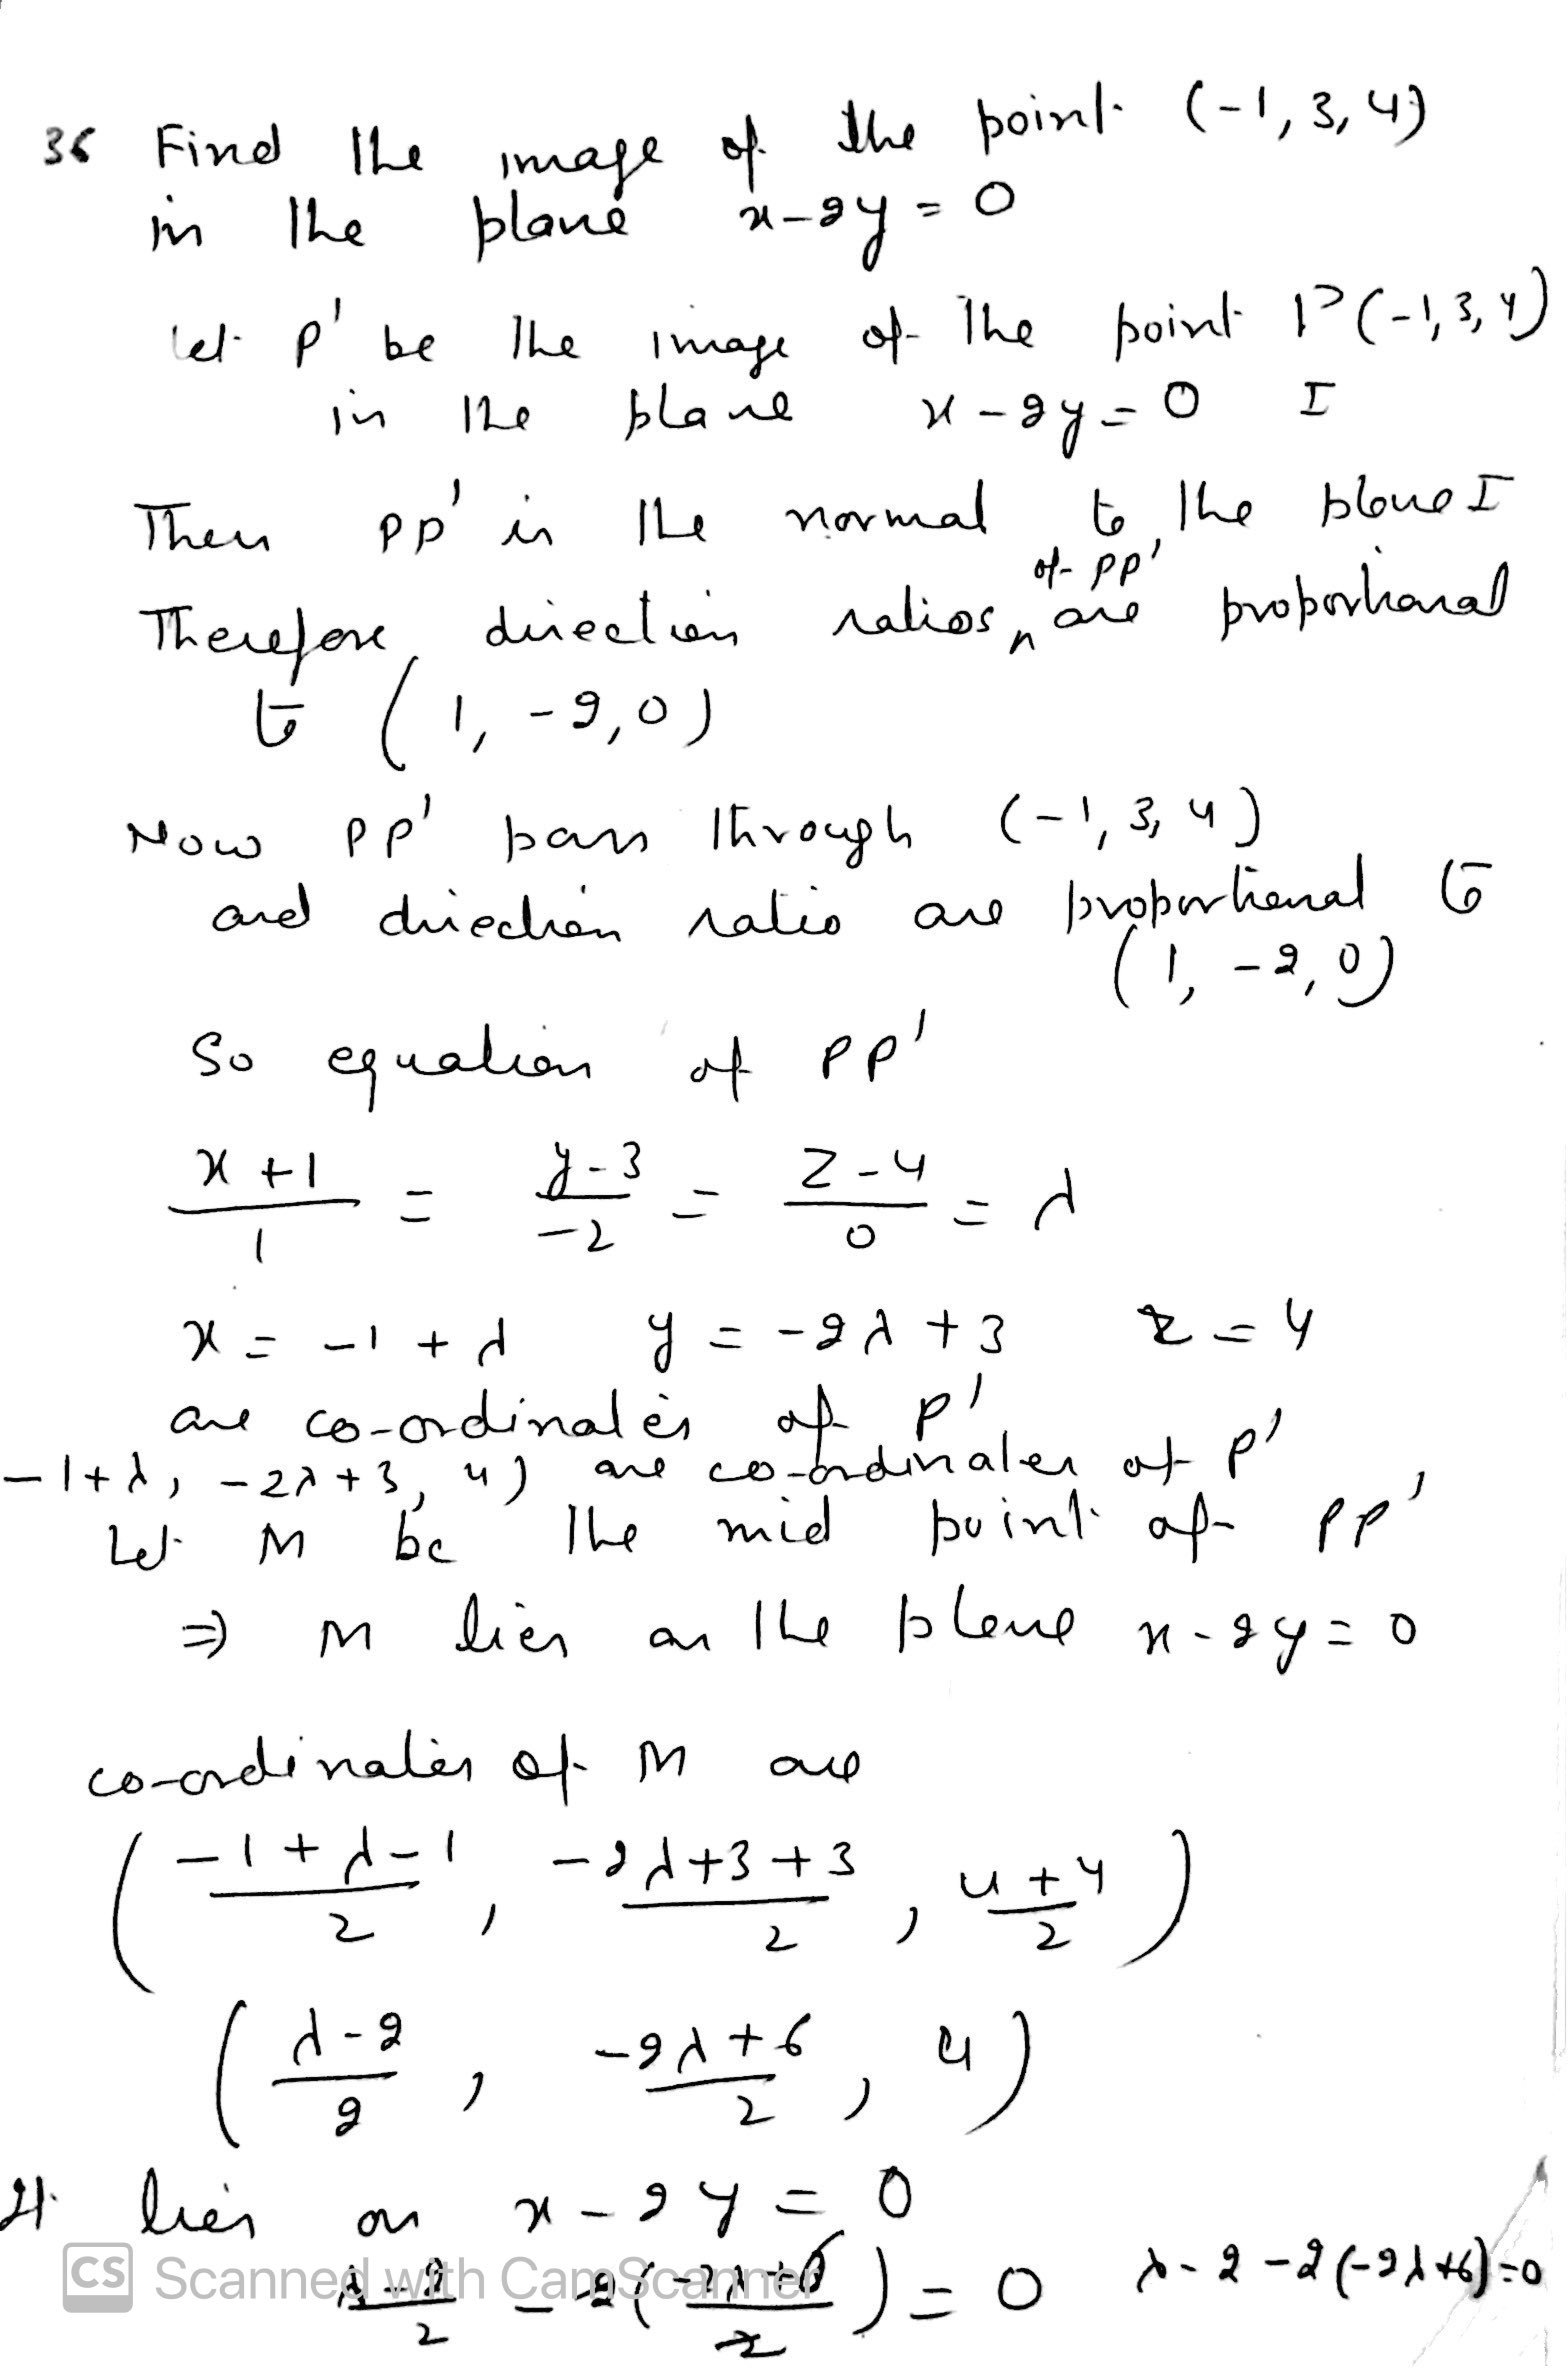 36 Find the image of the point (-1, 3, 4)
in the plane x-2y = 0
let P' be the image of the point P(-1, 3, 4)
in the plane x-2y=0 I
Then PP' is the normal to the plane I
of PP'
Therefore direction ratios ^ are proportional
to (1, -2, 0)
Now PP' pass through (-1, 3, 4)
and direction ratio are proportional to
(1, -2, 0)
So equation of PP'
x+1/1 = y-3/-2 = z-4/0 = λ
x = -1+λ y = -2λ+3 z = 4
are co-ordinates of P'
-1+λ, -2λ+3, 4) are co-ordinates of P'
Let M be the mid point of PP'
⇒ M lies on the plane x-2y=0
co-ordinates of M are
(-1+λ-1/2, -2λ+3+3/2, 4+4/2)
(λ-2/2, -2λ+6/2, 4)
It lies on x-2y = 0
λ-2/2 - 2(-2λ+6/2) = 0 λ-2-2(-2λ+6)=0
CS Scanned with CamScanner